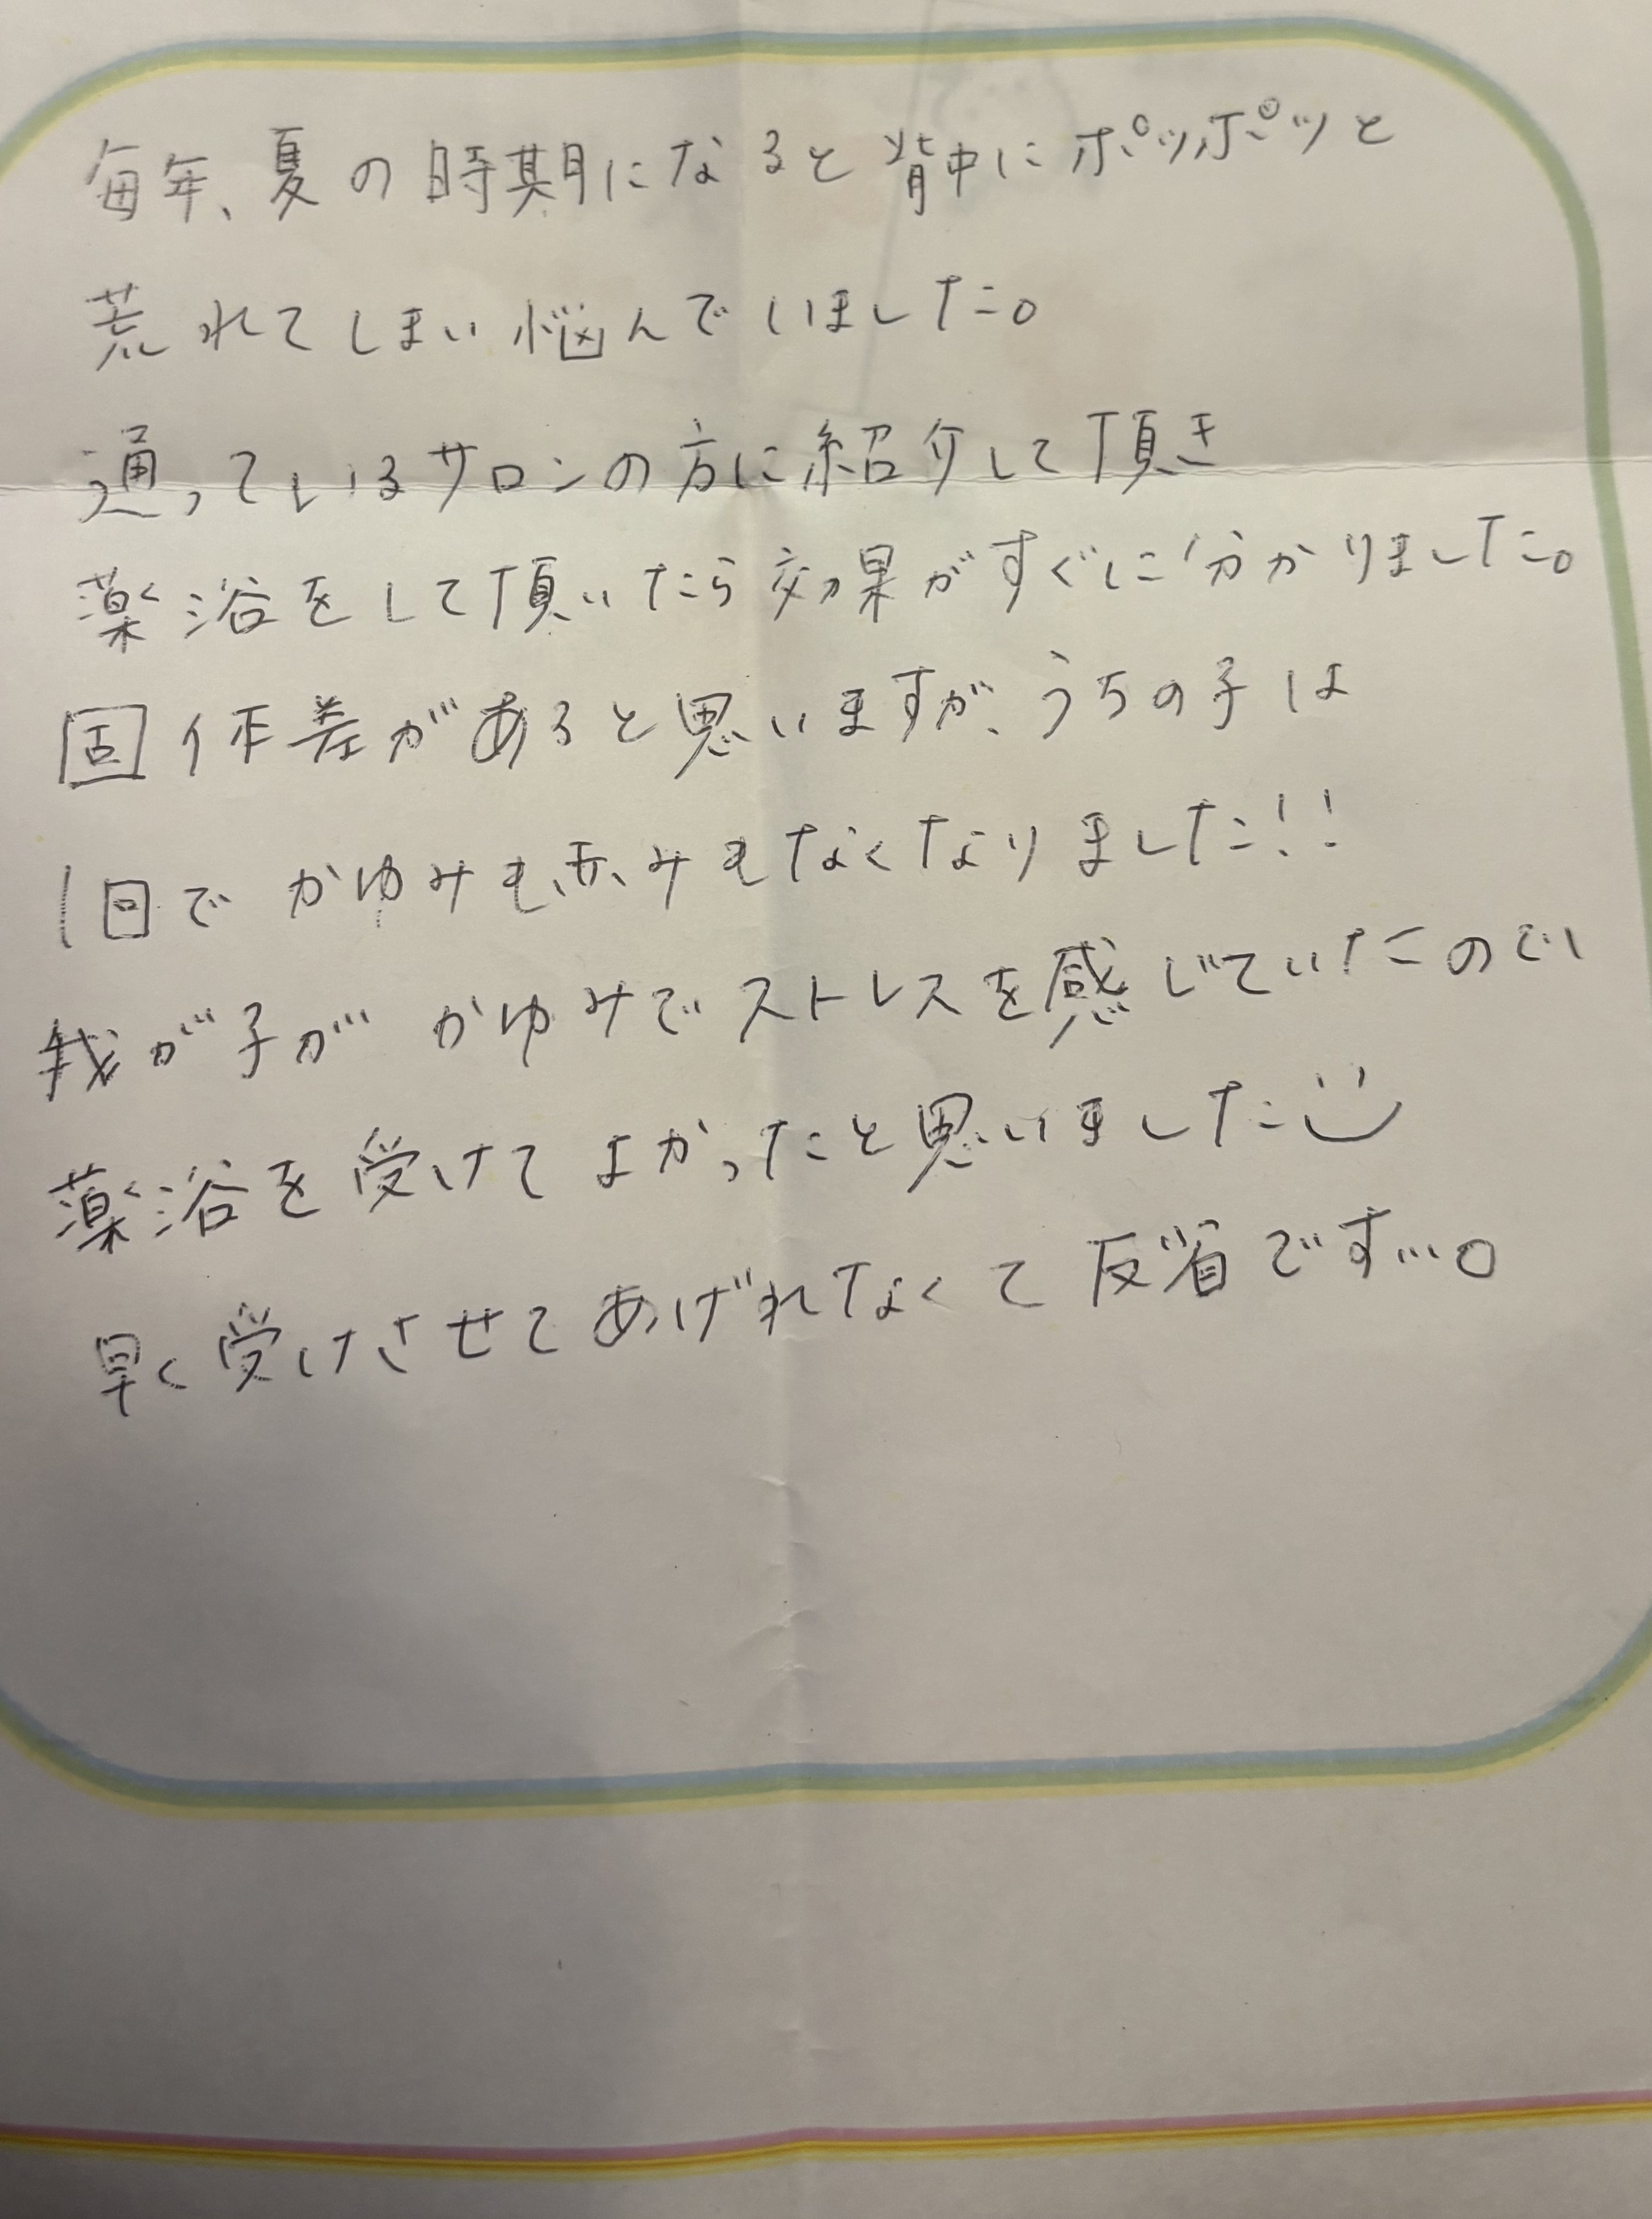 毎年、夏の時期になると背中にポツポツと
荒れてしまい悩んでいました。
通っているサロンの方に紹介して頂き
薬浴をして頂いたら効果がすぐに分かりました。
固体差があると思いますが、うちの子は
1回でかゆみも、赤みもなくなりました!!
我が子がかゆみでストレスを感じていたので
薬浴を受けてよかったと思いました
早く受けさせてあげれなくて反省です…。